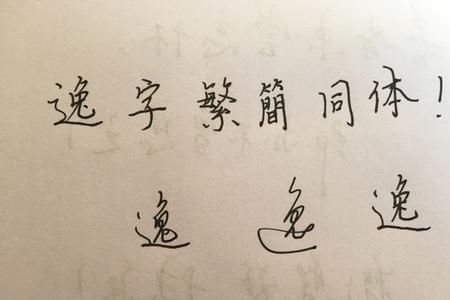 逸字繁簡同体!
逸 逸 逸